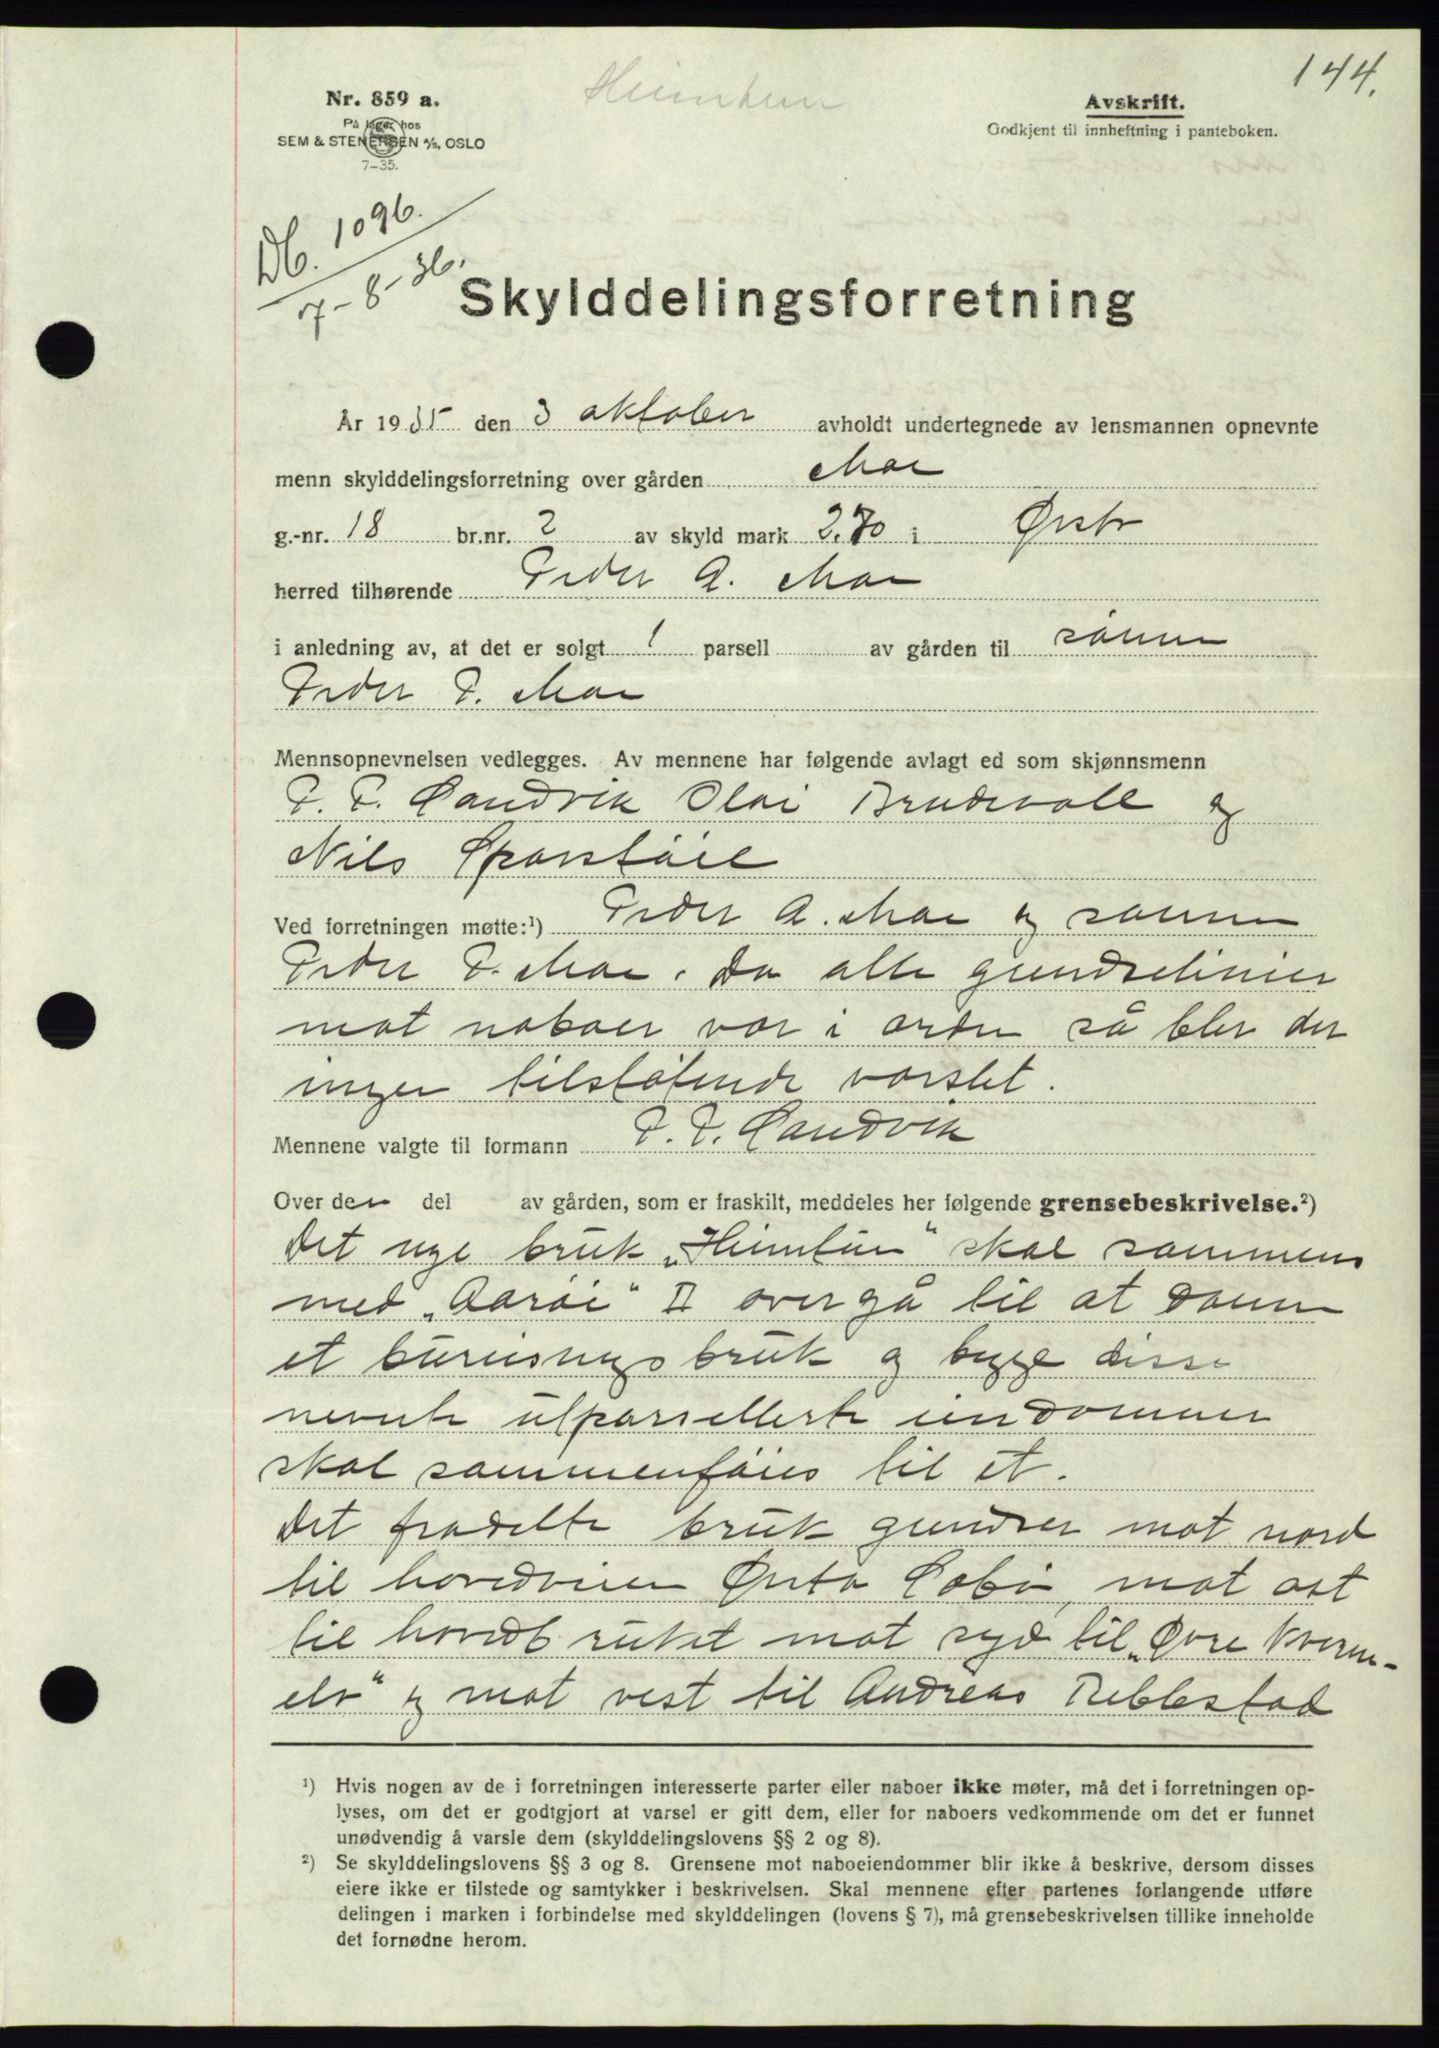 144.
Heimtun
Nr. 859 a.
På lager hos
SEM & STENERSEN A/S, OSLO
7-35.
Avskrift.
Godkjent til innheftning i panteboken.
Db. 1096.
7-8-36.
Skylddelingsforretning
År 1935 den 3 oktober avholdt undertegnede av lensmannen opnevnte
menn skylddelingsforretning over gården Moe
g.-nr. 18 br.nr. 2 av skyld mark 2.70 i Ørsta
herred tilhørende Peder A. Moe
i anledning av, at det er solgt 1 parsell av gården til sønnen
Peder P. Moe
Mennsopnevnelsen vedlegges. Av mennene har følgende avlagt ed som skjønnsmenn
P. P. Sandvik Olai Brudevoll og
Nils Sparstøil
Ved forretningen møtte:¹) Peder A. Moe og sønnen
Peder P. Moe. Da alle grendselinier
mot naboer var i orden så blev der
ingen tilstøtende varslet.
Mennene valgte til formann P. P. Sandvik
Over den del av gården, som er fraskilt, meddeles her følgende grensebeskrivelse.²)
Det nye bruk „Heimtun" skal sammens
med „Aarøi" II overgå til at danne
et bureisnings bruk og begge disse
nevnte utparsellerte eiendommer
skal sammenføies til et.
Det fradelte bruk grendser mot nord
til hovedveien Ørsta Sæbø, mot øst
til hovedbruket mot syd til „Øvre Kvern-
elv" og mot vest til Andreas Rebbestad
¹) Hvis nogen av de i forretningen interesserte parter eller naboer ikke møter, må det i forretningen op-
lyses, om det er godtgjort at varsel er gitt dem, eller for naboers vedkommende om det er funnet
unødvendig å varsle dem (skylddelingslovens §§ 2 og 8).
²) Se skylddelingslovens §§ 3 og 8. Grensene mot naboeiendommer blir ikke å beskrive, dersom disses
eiere ikke er tilstede og samtykker i beskrivelsen. Skal mennene efter partenes forlangende utføre
delingen i marken i forbindelse med skylddelingen (lovens § 7), må grensebeskrivelsen tillike inneholde
det fornødne herom.